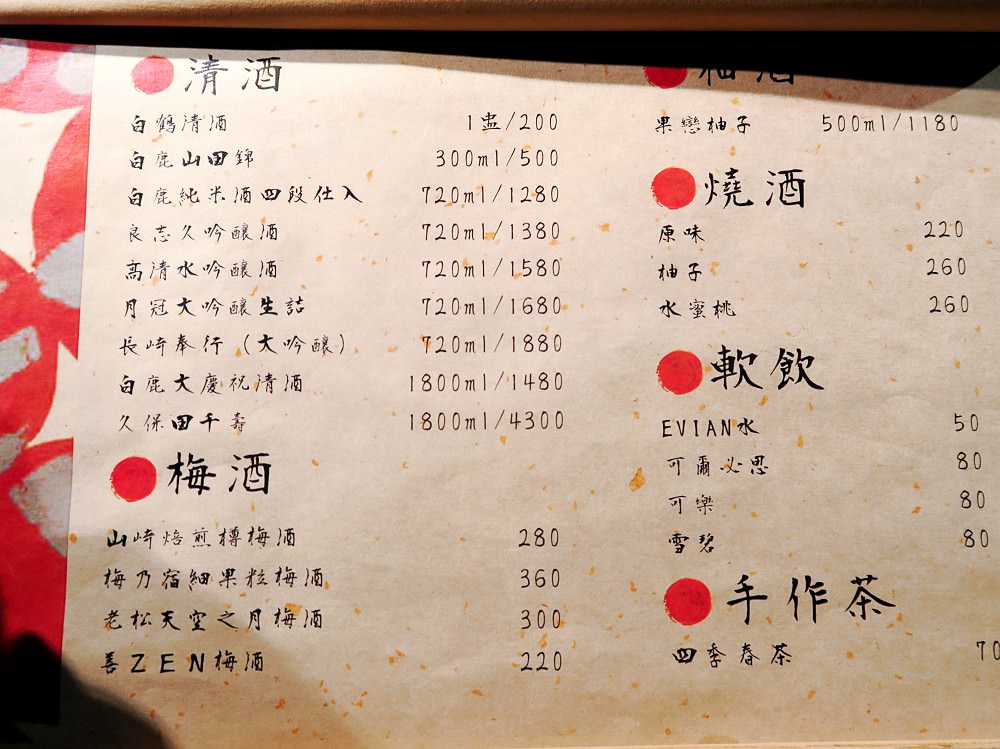 清酒
白鶴清酒 1盅/200
白鹿山田錦 300ml/500
白鹿純米酒四段仕入 720ml/1280
良志久吟釀酒 720ml/1380
高清水吟釀酒 720ml/1580
月冠大吟釀生詰 720ml/1680
長崎奉行(大吟釀) 720ml/1880
白鹿大慶祝清酒 1800ml/1480
久保田千壽 1800ml/4300
梅酒
山崎焙煎樽梅酒 280
梅乃宿細果粒梅酒 360
老松天空之月梅酒 300
善ZEN梅酒 220
柚酒
果戀柚子 500ml/1180
燒酒
原味 220
柚子 260
水蜜桃 260
軟飲
EVIAN水 50
可爾必思 80
可樂 80
雪碧 80
手作茶
四季春茶 70